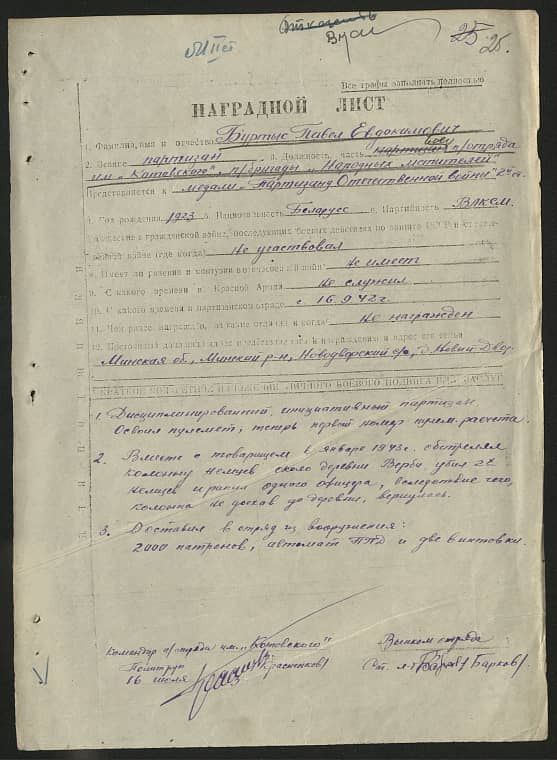 Отказать
25 25.
Все графы заполнять полностью
НАГРАДНОЙ ЛИСТ
1. Фамилия, имя и отчество Буртыс Павел Евдокимович
2. Звание партизан 3. Должность, часть боец п/отряда
им. "Котовского", п/бригады "Народных мстителей"
Представляется к медали "Партизану Отечественной войны" 2й ст.
4. Год рождения 1923 5. Национальность Беларусс 6. Партийность ВЛКСМ.
7. Участие в гражданской войне, последующих боевых действиях по защите СССР и отечественной войне (где когда) Не участвовал
8. Имеет ли ранения и контузии в отечественной войне Не имеет
9. С какого времени в Красной Армии Не служил
10. С какого времени в партизанском отряде с 16.9.42 г
11. Чем ранее награжден, за какие отличия и когда Не награжден
12. Постоянный домашний адрес представляемого к награждению и адрес его семьи
Минская об., Минский р-н, Новодворский с/с, д. Новый Двор.
КРАТКОЕ КОНКРЕТНОЕ ИЗЛОЖЕНИЕ ЛИЧНОГО БОЕВОГО ПОДВИГА ИЛИ ЗАСЛУГ
1. Дисциплинированный, инициативный партизан.
Освоил пулемет, теперь первый номер пулем. расчета.
2. Вместе с товарищем в январе 1943 г. обстрелял
колонну немцев около деревни Верба, убил 2х
немцев и ранил одного офицера, вследствие чего,
колонна не доехав до деревни, вернулась.
3. Доставил в отряд из вооружения:
2000 патронов, автомат ППД и две винтовки.
Командир п/отряда им. "Котовского" Военком отряда
Политрук /Красненков/ Ст. л-т /Барков/
16 июля